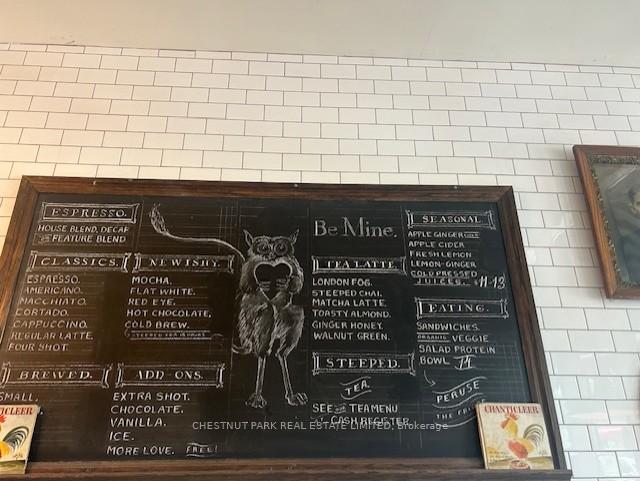 ESPRESSO.
HOUSE BLEND, DECAF
FEATURE BLEND
CLASSICS.
ESPRESSO.
AMERICANO.
MACCHIATO.
CORTADO.
CAPPUCCINO.
REGULAR LATTE.
POUR SHOT.
NEWISHY.
MOCHA.
FLAT WHITE.
RED EYE.
HOT CHOCOLATE,
COLD BREW.
BREWED.
SMALL.
ADD-ONS.
EXTRA SHOT.
CHOCOLATE.
VANILLA.
ICE.
MORE LOVE. FREE!
Be Mine.
TEA LATTE
LONDON FOG.
STEEPED CHAI.
MATCHA LATTE.
TOASTY ALMOND.
GINGER HONEY.
WALNUT GREEN.
STEEPED.
TEA.
SEE TEA MENU
CASH REGISTER
SEASONAL
APPLE GINGER
APPLE CIDER
FRESH LEMON
LEMON-GINGER
COLD PRESSED
JUICES. 11-13
EATING.
SANDWICHES.
ORGANIC VEGGIE
SALAD PROTEIN
BOWL 17
PERUSE
THE
CHANTICLEER
CHANTICLEER
CHESTNUT PARK REAL ESTATE LIMITED, Brokerage